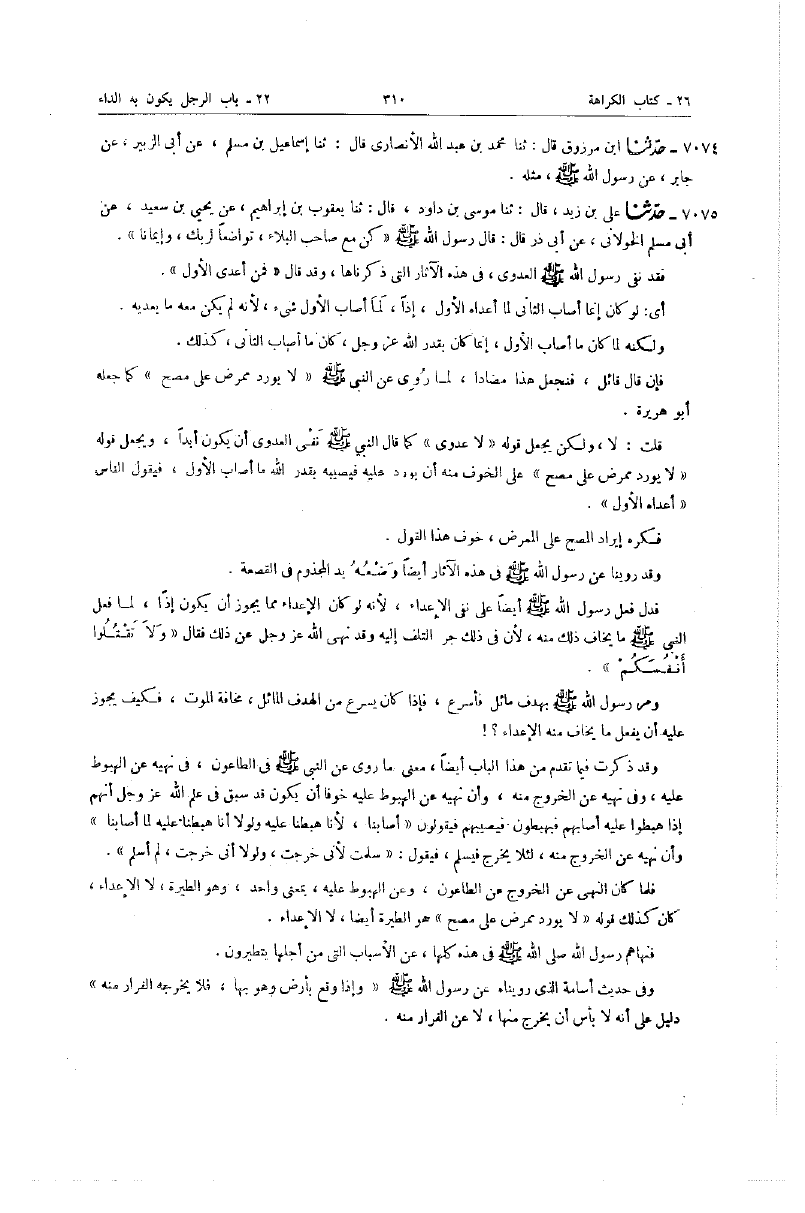 ٢٦ - كتاب الكراهة ٣١٠ ٢٢ - باب الرجل يكون به الداء
٧٠٧٤ - حَدَّثَنَا ابن مرزوق قال : ثنا محمد بن عبد الله الأنصارى قال : ثنا إسماعيل بن مسلم ، عن أبى الزبير ، عن
جابر ، عن رسول الله ﷺ ، مثله .
٧٠٧٥ - حَدَّثَنَا على بن زيد ، قال : ثنا موسى بن داود ، قال : ثنا يعقوب بن إبراهيم ، عن يحيى بن سعيد ، عن
أبى مسلم الخولانى ، عن أبى ذر قال : قال رسول الله ﷺ « كن مع صاحب البلاء ، تواضعاً لربك ، وإيمانا » .
فقد نفى رسول الله ﷺ العدوى ، فى هذه الآثار التى ذكرناها ، وقد قال « فمن أعدى الأول » .
أى : لو كان إنما أصاب الثانى لما أعداه الأول ، إذاً ، لَمَا أصاب الأول شىء ، لأنه لم يكن معه ما يعديه .
ولكنه لما كان ما أصاب الأول ، إنما كان بقدر الله عز وجل ، كان ما أصاب الثانى ، كذلك .
فإن قال قائل ، فنجعل هذا مضادا ، لما رُوِىَ عن النبى ﷺ « لا يورد ممرض على مصح » كما جعله
أبو هريرة .
قلت : لا ، ولكن يجعل قوله « لا عدوى » كما قال النبى ﷺ نَفْى العدوى أن يكون أبداً ، ويجعل قوله
« لا يورد ممرض على مصح » على الخوف منه أن يورد عليه فيصيبه بقدر الله ما أصاب الأول ، فيقول الناس
« أعداه الأول » .
فكره إيراد المصح على الممرض ، خوف هذا القول .
وقد روينا عن رسول الله ﷺ فى هذه الآثار أيضاً وَضْعُهُ يد المجذوم فى القصعة .
فدل فعل رسول الله ﷺ أيضاً على نفى الإعداء ، لأنه لو كان الإعداء مما يجوز أن يكون إذًا ، لما فعل
النبى ﷺ ما يخاف ذلك منه ، لأن فى ذلك جر التلف إليه وقد نهى الله عز وجل عن ذلك فقال « وَلاَ تَقْتُلُوا
أَنْفُسَكُمْ » .
ومر رسول الله ﷺ بهدف مائل فأسرع ، فإذا كان يسرع من الهدف المائل ، مخافة الموت ، فكيف يجوز
عليه أن يفعل ما يخاف منه الإعداء ؟ !
وقد ذكرت فيما تقدم من هذا الباب أيضاً ، معنى ما روى عن النبى ﷺ فى الطاعون ، فى نهيه عن الهبوط
عليه ، وفى نهيه عن الخروج منه ، وأن نهيه عن الهبوط عليه خوفا أن يكون قد سبق فى علم الله عز وجل أنهم
إذا هبطوا عليه أصابهم فيهبطون فيصيبهم فيقولون « أصابنا ، لأنا هبطنا عليه ولولا أنا هبطنا عليه لما أصابنا »
وأن نهيه عن الخروج منه ، لئلا يخرج فيسلم ، فيقول : « سلمت لأنى خرجت ، ولولا أنى خرجت ، لم أسلم » .
فلما كان النهى عن الخروج من الطاعون ، وعن الهبوط عليه ، بمعنى واحد ، وهو الطيرة ، لا الإعداء ،
كان كذلك قوله « لا يورد ممرض على مصح » هو الطيرة أيضا ، لا الإعداء .
فنهاهم رسول الله صلى الله ﷺ فى هذه كلها ، عن الأسباب التى من أجلها يتطيرون .
وفى حديث أسامة الذى رويناه عن رسول الله ﷺ « وإذا وقع بأرض وهو بها ، فلا يخرجه الفرار منه »
دليل على أنه لا بأس أن يخرج منها ، لا عن الفرار منه .